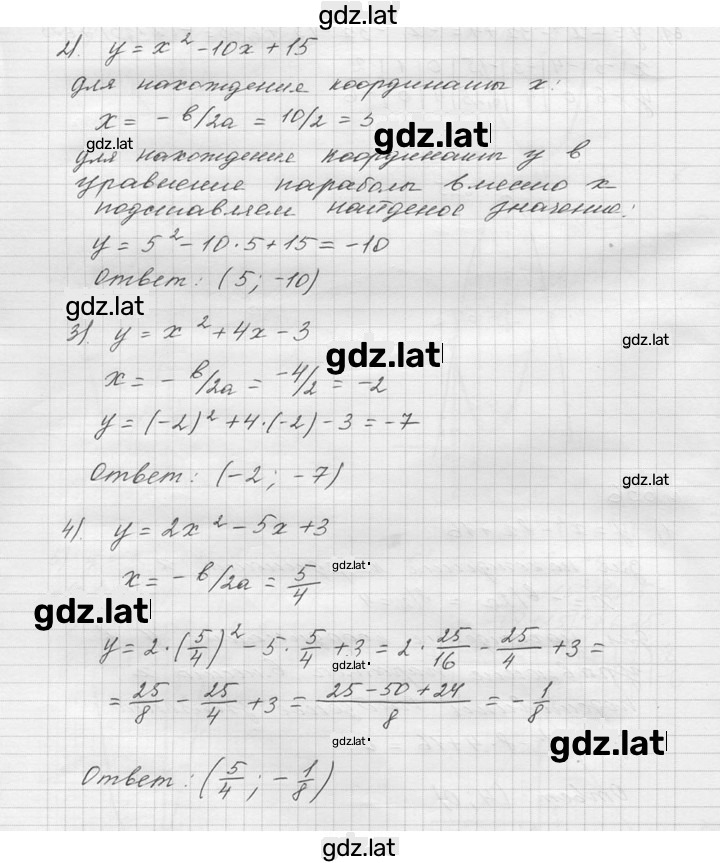 gdz.lat
2). y = x² - 10x + 15
для нахождение координаты x:
x = - в/2a = 10/2 = 5
gdz.lat
gdz.lat
для нахождение координаты y в
уравнение параболы вместо x
подставляем найденое значение:
y = 5² - 10·5 + 15 = -10
Ответ: (5; -10)
gdz.lat
3). y = x² + 4x - 3
gdz.lat
gdz.lat
x = - в/2a = -4/2 = -2
y = (-2)² + 4·(-2) - 3 = -7
Ответ: (-2; -7)
gdz.lat
4). y = 2x² - 5x + 3
gdz.lat
x = - в/2a = 5/4
gdz.lat
y = 2·(5/4)² - 5·5/4 + 3 = 2·25/16 - 25/4 + 3 =
gdz.lat
= 25/8 - 25/4 + 3 = (25-50+24)/8 = -1/8
gdz.lat
gdz.lat
Ответ: (5/4; -1/8)
gdz.lat